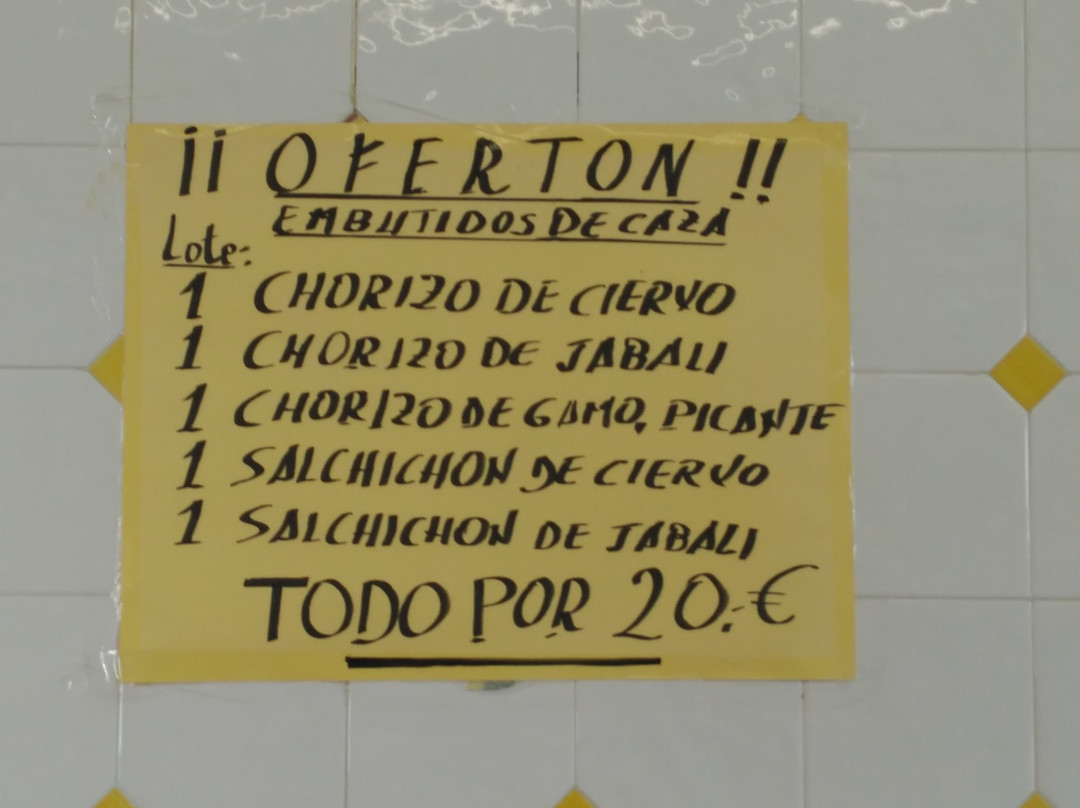 ¡¡ OFERTON !!
EMBUTIDOS DE CAZA
Lote:
1 CHORIZO DE CIERVO
1 CHORIZO DE JABALI
1 CHORIZO DE GAMO, PICANTE
1 SALCHICHON DE CIERVO
1 SALCHICHON DE JABALI
TODO POR 20.-€